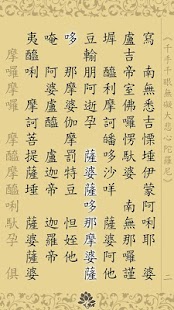 《千手千眼無礙大悲心陀羅尼》 二
寫 南無悉吉慄埵伊蒙阿唎耶 婆
盧吉帝室佛囉愣馱婆 南無那囉謹
墀 醯唎摩訶皤哆沙咩 薩婆阿他
豆輸朋 阿逝孕 薩婆薩哆那摩婆薩
哆 那摩婆伽 摩罰特豆 怛姪他
唵 阿婆盧醯 盧迦帝 迦羅帝
夷醯唎 摩訶菩提薩埵 薩婆薩婆
摩囉摩囉 摩醯摩醯唎馱孕 俱